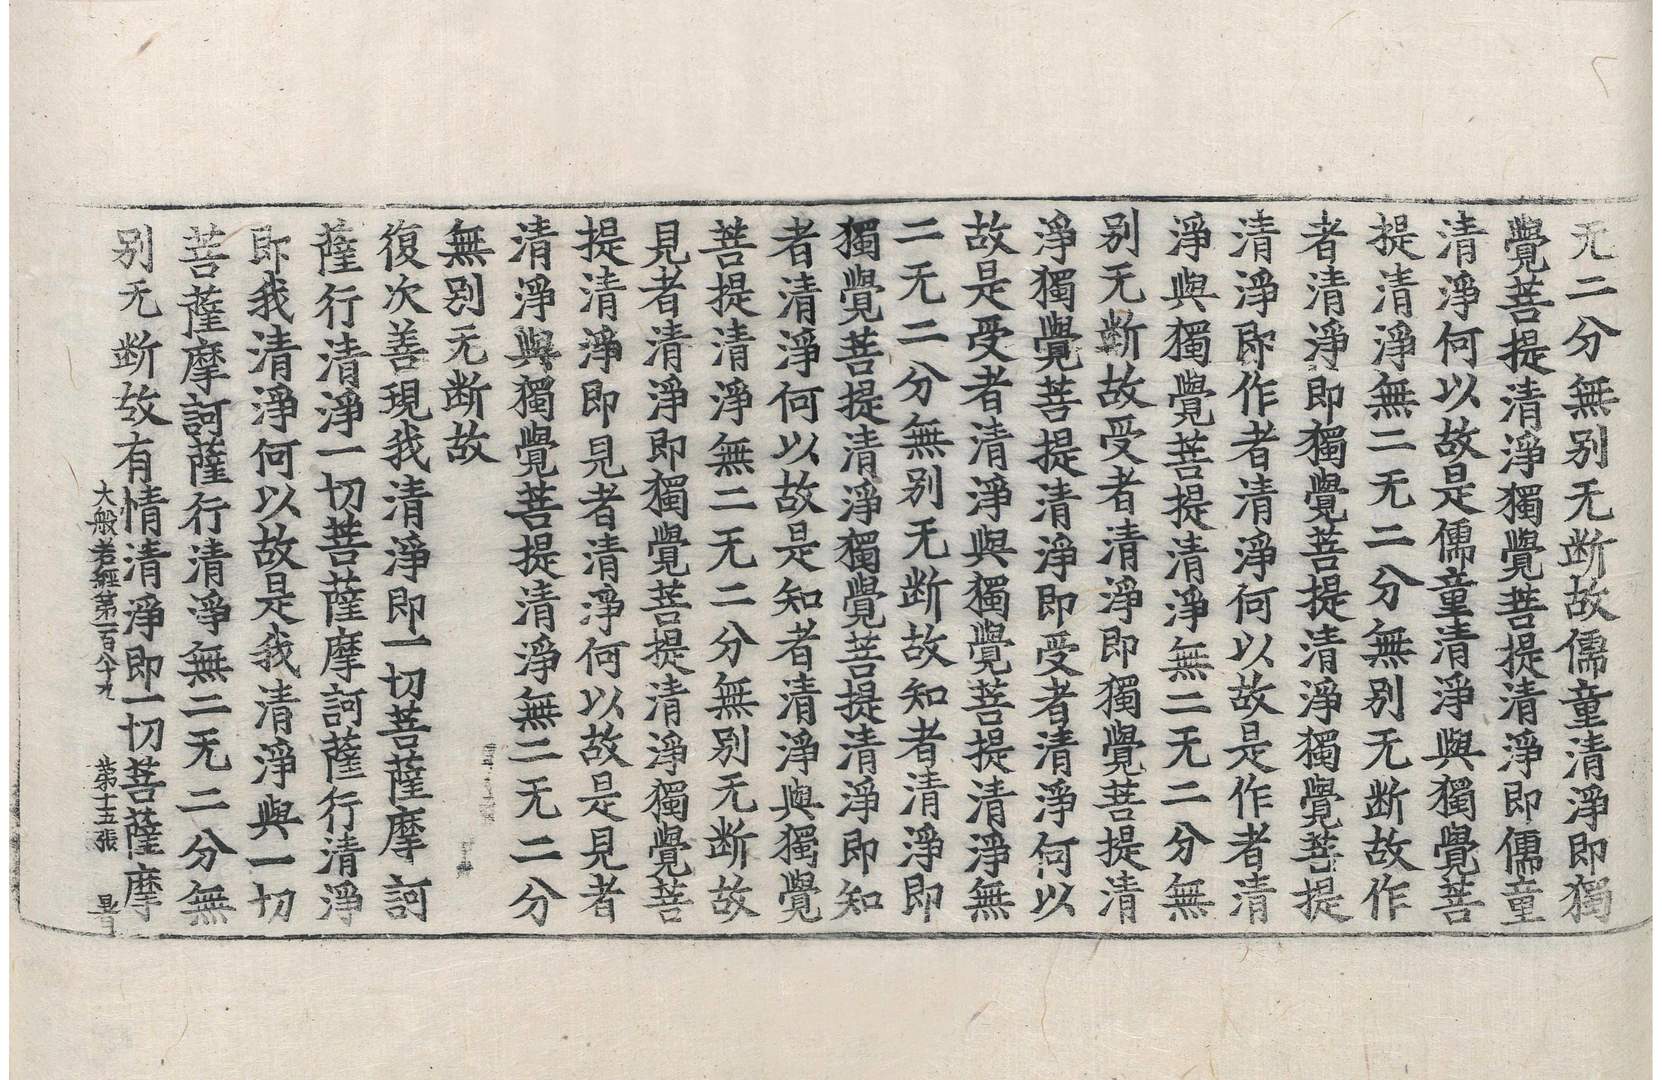 无二分無别无断故儒童清淨即獨
覺菩提清淨獨覺菩提清淨即儒童
清淨何以故是儒童清淨與獨覺菩
提清淨無二无二分無别无断故作
者清淨即獨覺菩提清淨獨覺菩提
清淨即作者清淨何以故是作者清
淨與獨覺菩提清淨無二无二分無
别无断故受者清淨即獨覺菩提清
淨獨覺菩提清淨即受者清淨何以
故是受者清淨與獨覺菩提清淨無
二无二分無别无断故知者清淨即
獨覺菩提清淨獨覺菩提清淨即知
者清淨何以故是知者清淨與獨覺
菩提清淨無二无二分無别无断故
見者清淨即獨覺菩提清淨獨覺菩
提清淨即見者清淨何以故是見者
清淨與獨覺菩提清淨無二无二分
無别无断故
復次善現我清淨即一切菩薩摩訶
薩行清淨一切菩薩摩訶薩行清淨
即我清淨何以故是我清淨與一切
菩薩摩訶薩行清淨無二无二分無
别无断故有情清淨即一切菩薩摩
大般若經第一百八十九 第十五張 暑